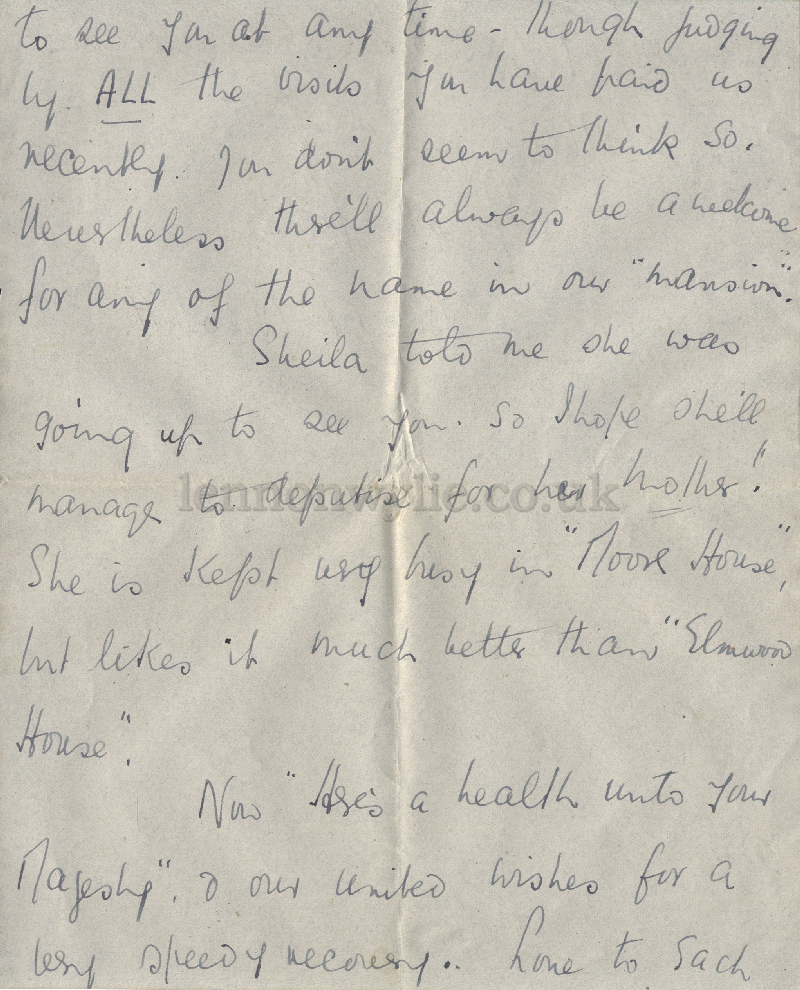 to see you at any time - though judging
by ALL the visits you have paid us
recently. you don't seem to think so.
Nevertheless there'll always be a welcome
for any of the name in our "mansion".
Sheila told me she was
going up to see you. so I hope she'll
manage to deputise for her mother!
lennonwylie.co.uk
She is kept very busy in "Moore House",
but likes it much better than "Elmwood
House".
Now "Here's a health unto your
Majesty", & our united wishes for a
very speedy recovery.. Love to each